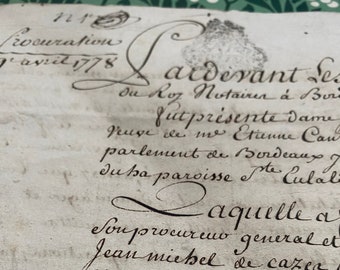 Procuration
1er avril 1778
Pardevant Les
du Roy Notaires à Bor
fut présente dame
veuve de me Etienne Cau
parlement de Bordeaux
du ha paroisse Ste Eulal
Laquelle a
son procureur general et
Jean michel de cazea